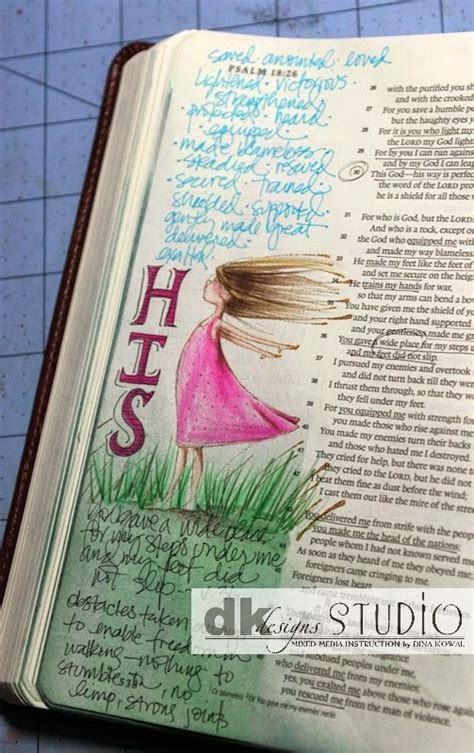 saved · anointed · loved
PSALM 18:26
lightened · victorious ·
· strengthened ·
protected · heard ·
equipped ·
· made blameless ·
steadied · rescued ·
secured · trained ·
shielded · supported ·
gently made great
delivered ·
exalted ·
HIS
you gave a wide place
for my steps under me
and my feet did
not slip – v.
obstacles taken away
to enable freedom in
walking – nothing to
stumble, no
limp, strong joints
26 with the purified you sh
and with the crooked
For you save a humble peo
but the haughty eyes yo
For it is you who light my
the LORD my God lighte
For by you I can run agains
and by my God I can leap
30 This God—his way is perfe
the word of the LORD pr
he is a shield for all those
31 For who is God, but the LORD
And who is a rock, except ou
32 the God who equipped me with
and made my way blameless
33 He made my feet like the feet of
and set me secure on the heigh
34 He trains my hands for war,
so that my arms can bend a bo
35 You have given me the shield of y
and your right hand supported
and your gentleness made me great
36 You gave a wide place for my steps u
and my feet did not slip.
I pursued my enemies and overtook
and did not turn back till they wer
38 I thrust them through, so that they w
they fell under my feet.
For you equipped me with strength fo
you made those who rise against me
40 You made my enemies turn their back
and those who hated me I destroyed
They cried for help, but there was none
they cried to the LORD, but he did not
I beat them fine as dust before the wind
I cast them out like the mire of the stre
You delivered me from strife with the peo
you made me the head of the nations;
people whom I had not known served me
As soon as they heard of me they obeyed
foreigners came cringing to me.
Foreigners lost heart
and came trembling
dk designs STUDIO
MIXED MEDIA INSTRUCTION by DINA KOWAL
and subdued peoples under me,
who delivered me from my enemies;
yes, you exalted me above those who rose against
you rescued me from the man of violence.
Or blameless 2 Or You gave me my enemies' necks